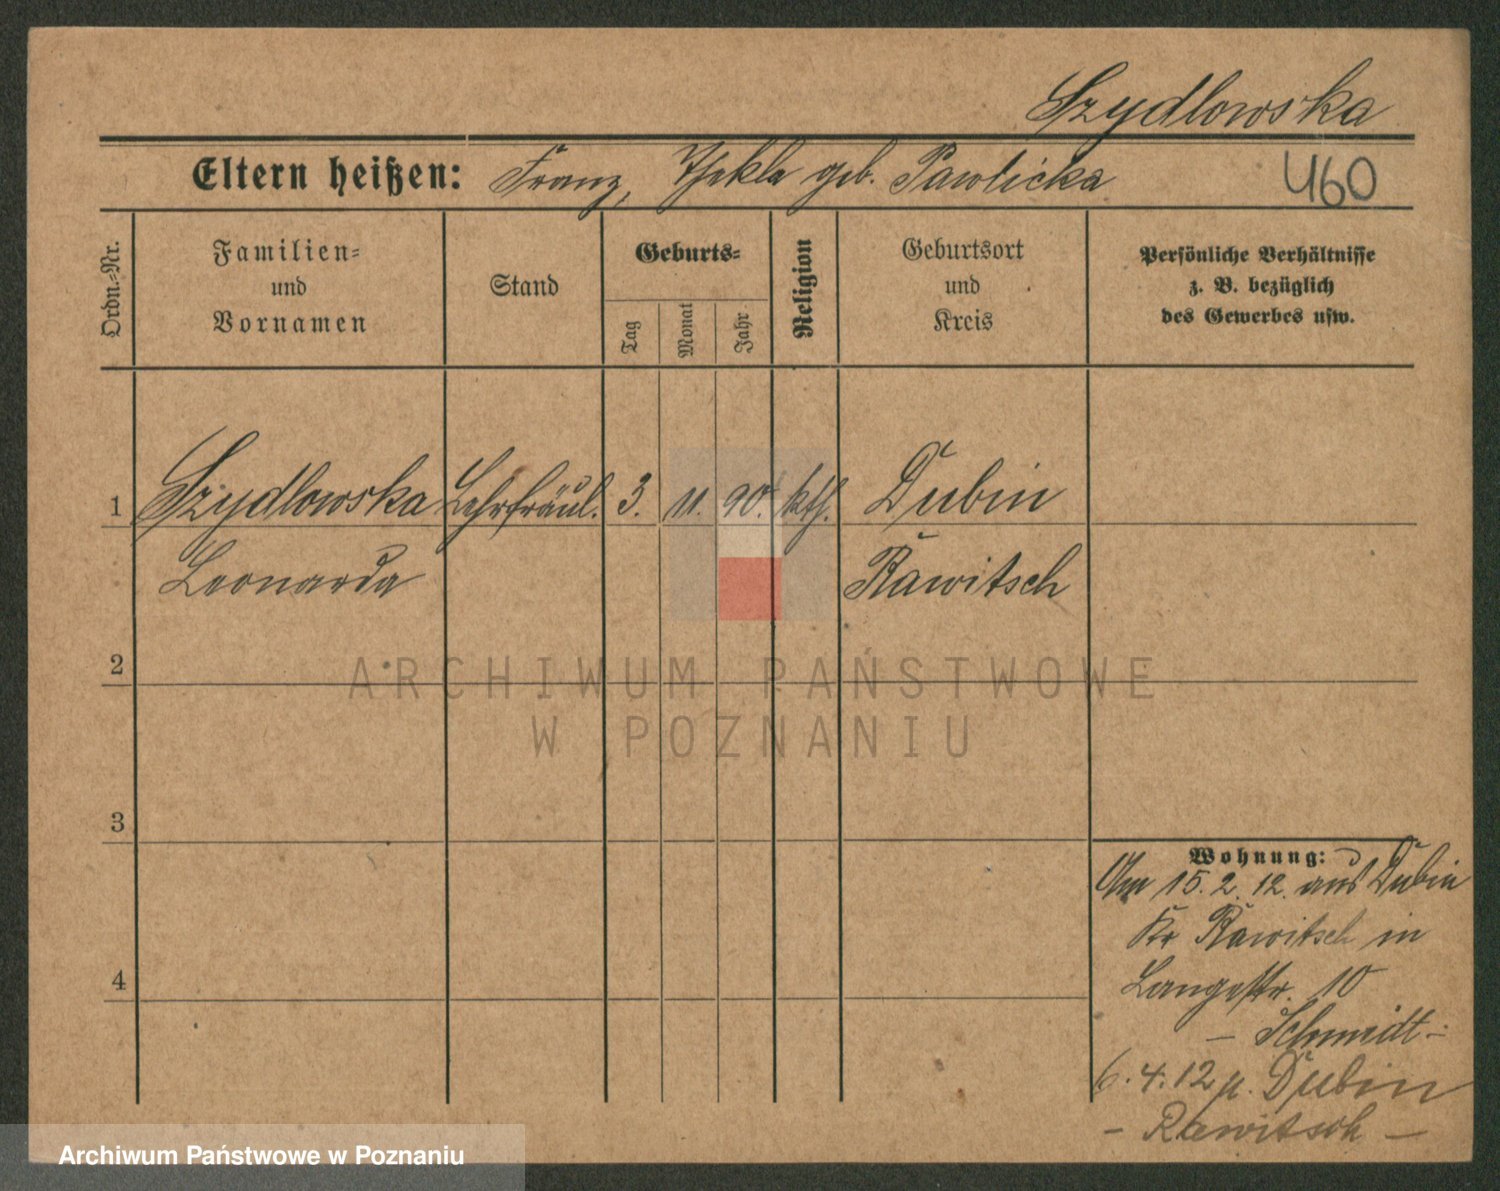 Szydlowska
Eltern heißen: Franz, Thekla geb. Pawlicka
460
Ordn.=Nr.
Familien=
und
Vornamen
Stand
Geburts=
Tag
Monat
Jahr
Religion
Geburtsort
und
Kreis
Persönliche Verhältnisse
z. B. bezüglich
des Gewerbes usw.
1 Szydlowska Lehrfräul. 3. 11. 90. kth. Dubin
Leonarda Rawitsch
2
ARCHIWUM PAŃSTWOWE
W POZNANIU
3
Wohnung:
Am 15. 2. 12. aus Dubin
Kr Rawitsch in
4
Langestr. 10
- Schmidt -
6. 4. 12 n. Dubin
- Rawitsch -
Archiwum Państwowe w Poznaniu